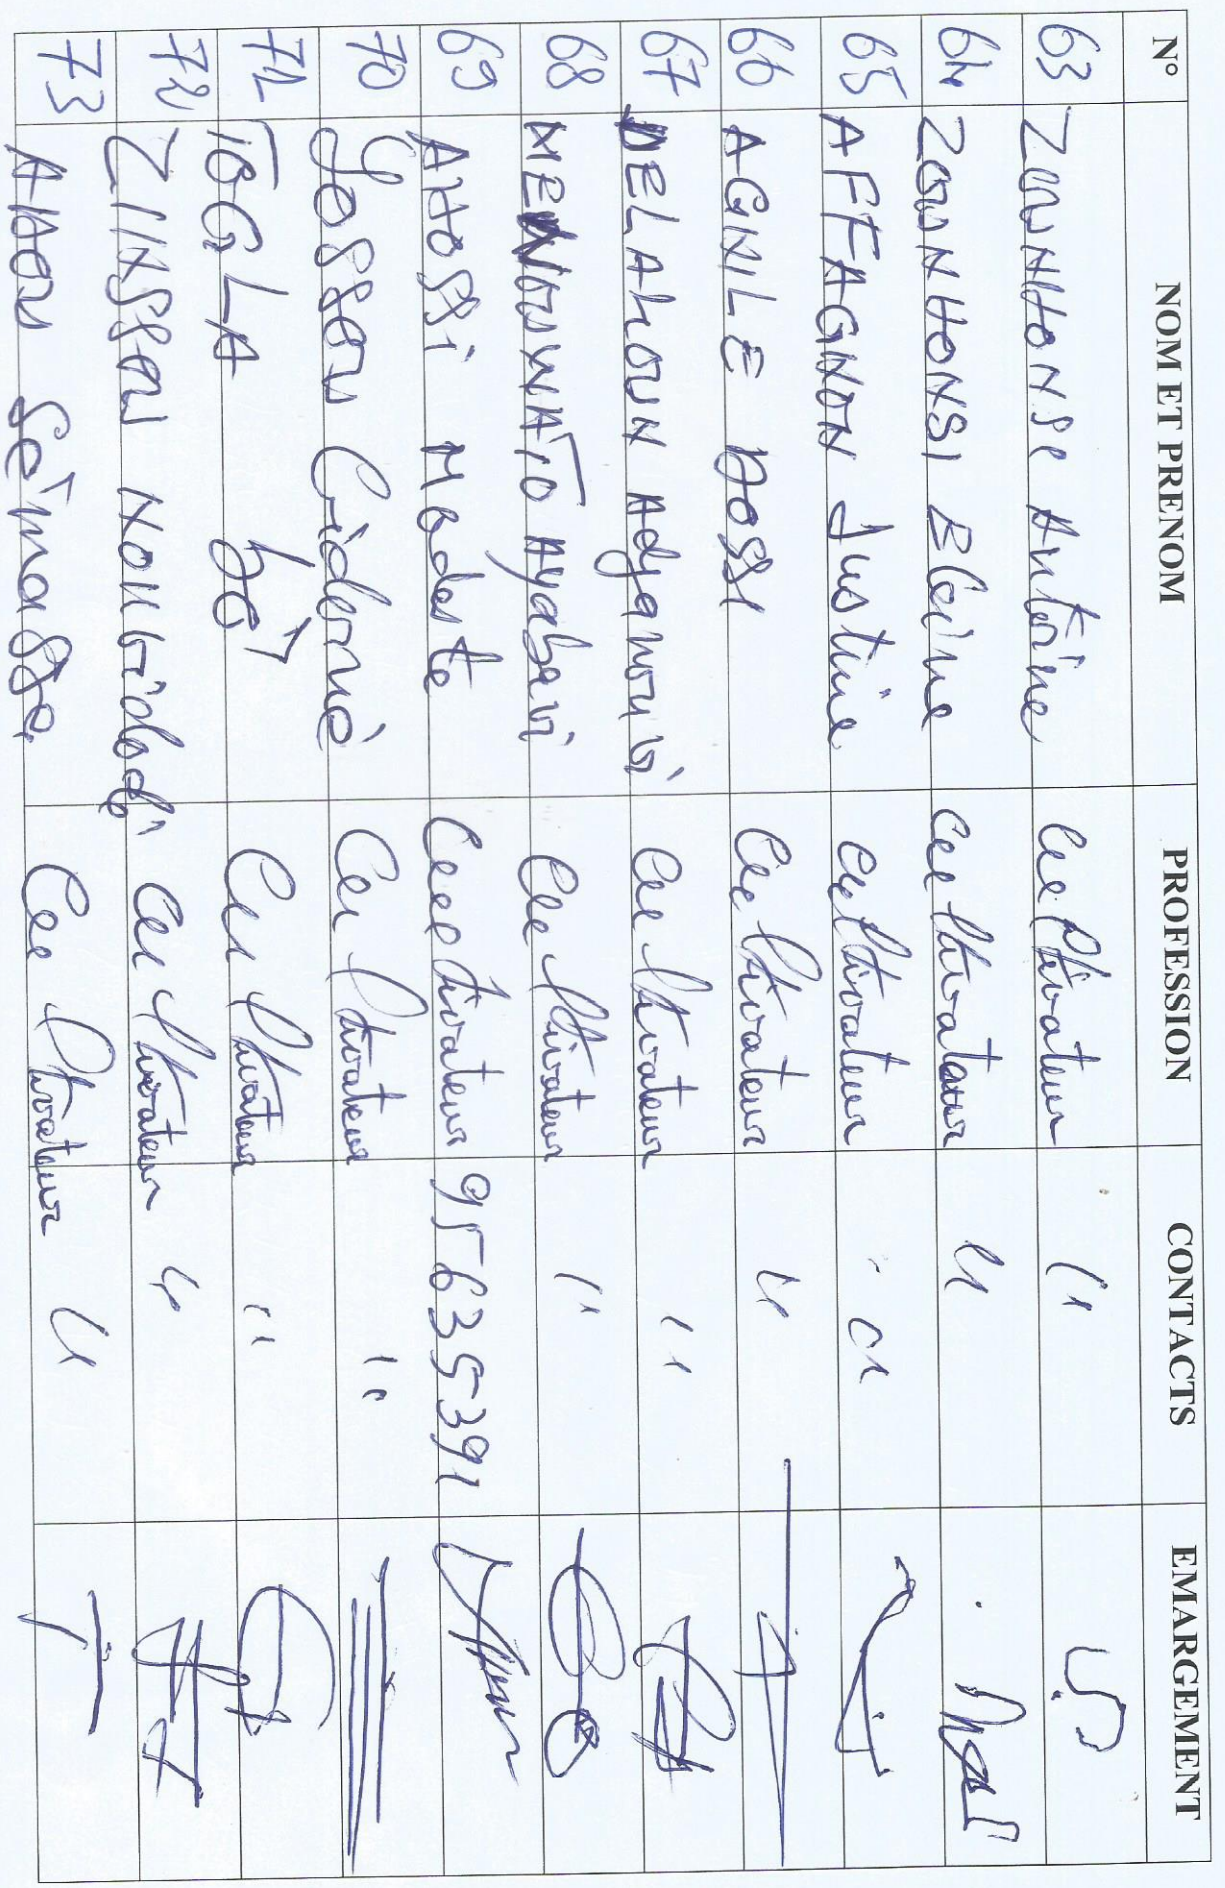 N° NOM ET PRENOM PROFESSION CONTACTS EMARGEMENT
63 ZOUNHONSI Antoine Cultivateur "
64 ZOUNHONSI Eloine Cultivateur "
65 AFFAGNON Justine Cultivateur "
66 AGNILE DOSSI Cultivateur "
67 DELAHOUN Adjanouvi Cultivateur "
68 Ayabavi Cultivateur "
69 AHOSSI Modeste Cultivateur 95635391
70 Yossou Cultivateur "
71 TOGLA Cultivateur "
72 ZINSSOU Cultivateur "
73 AHOU Cultivateur "